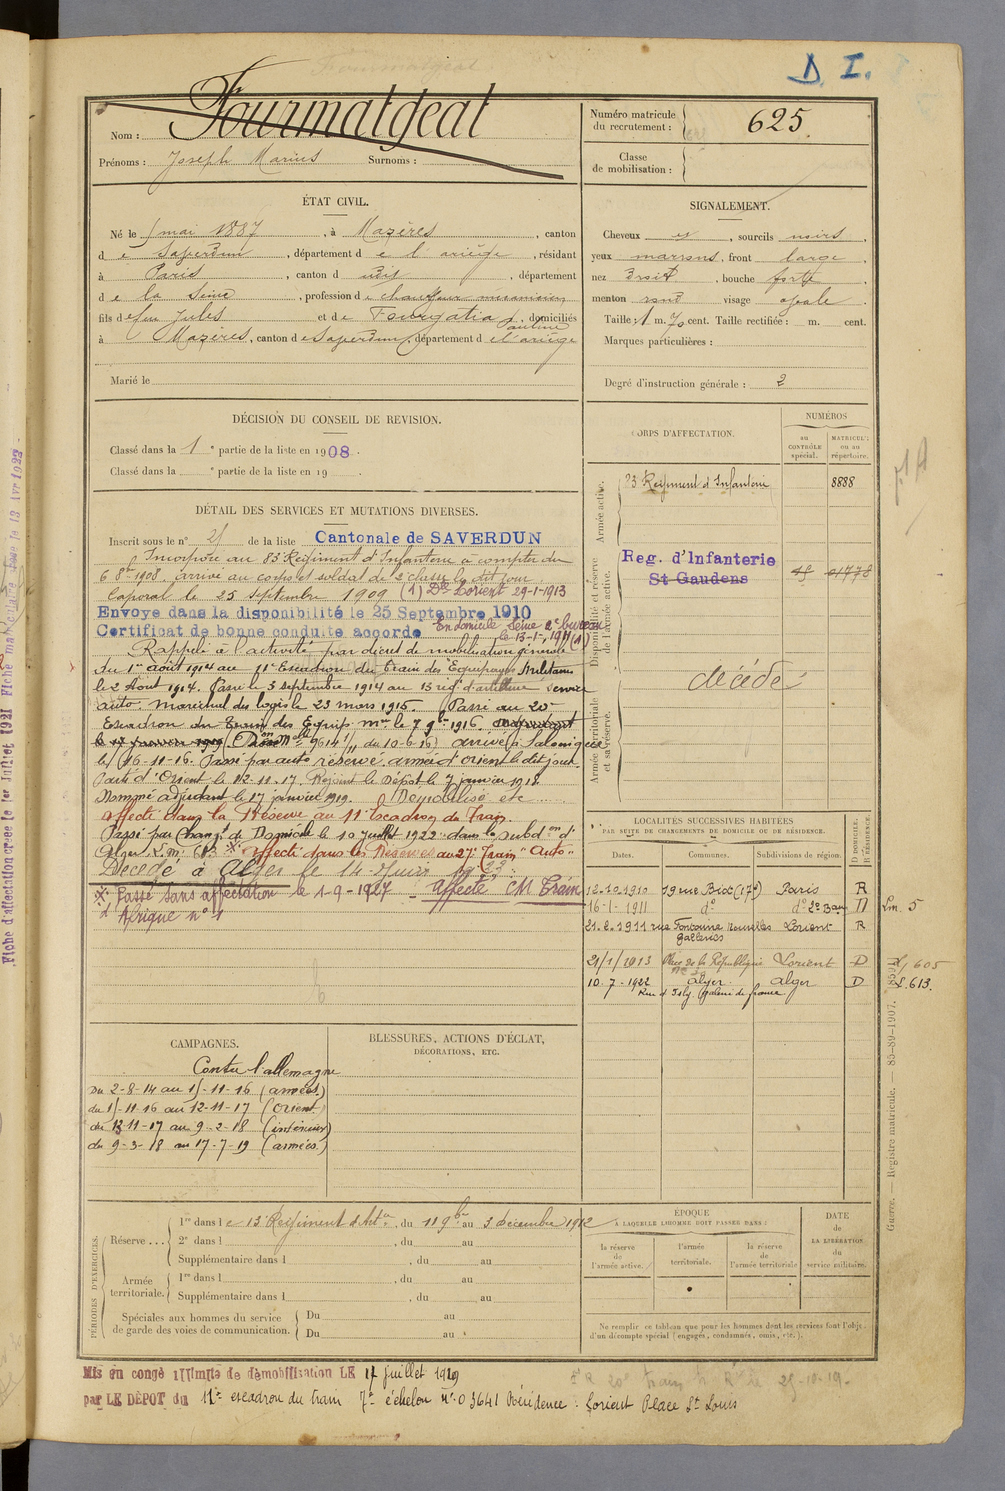 D. I.
Nom : Fourmatgeat
Prénoms : Joseph Marius Surnoms :
Numéro matricule du recrutement : 625
Classe de mobilisation :
ÉTAT CIVIL.
Né le mai 1887, à Mazères, canton
de Saverdun, département de l'ariège, résidant
à Paris, canton d udit, département
de la Seine, profession de chauffeur mécanicien
fils de feu Jules et de , domiciliés
à Mazères, canton de Saverdun, département de l'ariège
Marié le
SIGNALEMENT.
Cheveux , sourcils noirs,
yeux marrons, front large,
nez droit, bouche forte,
menton rond visage ovale.
Taille : 1 m. 70 cent. Taille rectifiée : m. cent.
Marques particulières :
Degré d'instruction générale : 2
DÉCISION DU CONSEIL DE REVISION.
Classé dans la 1e partie de la liste en 1908.
Classé dans la e partie de la liste en 19
CORPS D'AFFECTATION.
NUMÉROS
au CONTRÔLE spécial.
MATRICULE ou au répertoire.
Armée active.
83 Régiment d'Infanterie 8888
Disponibilité et réserve de l'armée active.
Reg. d'Infanterie
St Gaudens 01778
Armée territoriale et sa réserve.
décédé
DÉTAIL DES SERVICES ET MUTATIONS DIVERSES.
Inscrit sous le n° de la liste Cantonale de SAVERDUN
Incorporé au 83e Régiment d'Infanterie à compter du
6 8bre 1908, arrivé au corps et soldat de 2e classe le dit jour.
Caporal le 25 septembre 1909 (1) Dom Lorient 29-1-1913
Envoyé dans la disponibilité le 25 Septembre 1910
Certificat de bonne conduite accordé En domicile Seine 2e bureau
le 13-1-1911 (1)
Rappelé à l'activité par décret de mobilisation générale
du 1er août 1914 au 11e Escadron du Train des Equipages Militaires
le 2 Août 1914. Passé le 3 septembre 1914 au 13 rég. d'artillerie service
auto. maréchal des logis le 23 mars 1915. Passé au 20e
Escadron du Train des Equip. mres le 7 9bre 1916.
le 17 janvier 1919 9614 1/11 du 10-6-16) arrivé à Salonique
le 16-11-16. Passé parc auto réserve armée d'orient le dit jour.
Parti d'Orient le 12-11-17. Rejoint le Dépôt le 7 janvier 1918
Nommé adjudant le 17 janvier 1919. Démobilisé etc ....
affecté dans la Réserve au 11e Escadron du Train.
Passé par Changt de Domicile le 10 Juillet 1922 dans la subdon d'
Alger affecté dans les Réserves au 27e Train "Auto"
Décédé à Alger le 14
Passé sans affectation le 1-9-1927 – affecté CM Train
d'Afrique n° 1
LOCALITÉS SUCCESSIVES HABITÉES
PAR SUITE DE CHANGEMENTS DE DOMICILE OU DE RÉSIDENCE.
Dates. Communes. Subdivisions de région. D DOMICILE. R RÉSIDENCE.
12-10-1910 19 rue Biot (17e) Paris R
16-1-1911 do do 2e Bau D Lm. 5
21-2-1911 rue Fontaine Lorient R
galleries
21/1/1913 Place de la République Lorient D L. 605
10-7-1922 Alger Alger D L. 613.
Rue d'Isly, Galerie de france
CAMPAGNES.
Contre l'allemagne
Du 2-8-14 au 15-11-16 (armées)
du 15-11-16 au 12-11-17 (orient)
du 13-11-17 au 9-2-18 (intérieur)
du 9-3-18 au 17-7-19 (armées)
BLESSURES, ACTIONS D'ÉCLAT,
DÉCORATIONS, ETC.
PÉRIODES D'EXERCICES.
Réserve ... 1re dans le 13e Régiment d'Artie, du 11 9bre au 3 décembre 1912
2e dans l , du au
Supplémentaire dans l , du au
Armée territoriale. 1re dans l , du au
Supplémentaire dans l , du au
Spéciales aux hommes du service de garde des voies de communication. Du au
Du au
ÉPOQUE
À LAQUELLE L'HOMME DOIT PASSER DANS :
la réserve de l'armée active. l'armée territoriale. la réserve de l'armée territoriale
DATE de LA LIBÉRATION du service militaire.
Ne remplir ce tableau que pour les hommes dont les services font l'objet
d'un décompte spécial (engagés, condamnés, omis, etc.).
Mis en congé illimité de démobilisation LE 17 juillet 1919
par LE DÉPOT du 11e escadron du train 7e échelon N° 03641 Résidence : Lorient Place St Louis
Guerre. — Registre matricule. — 85-89-1907.
Fiche d'affectation créée le 1er Juillet 1921 Fiche matriculaire